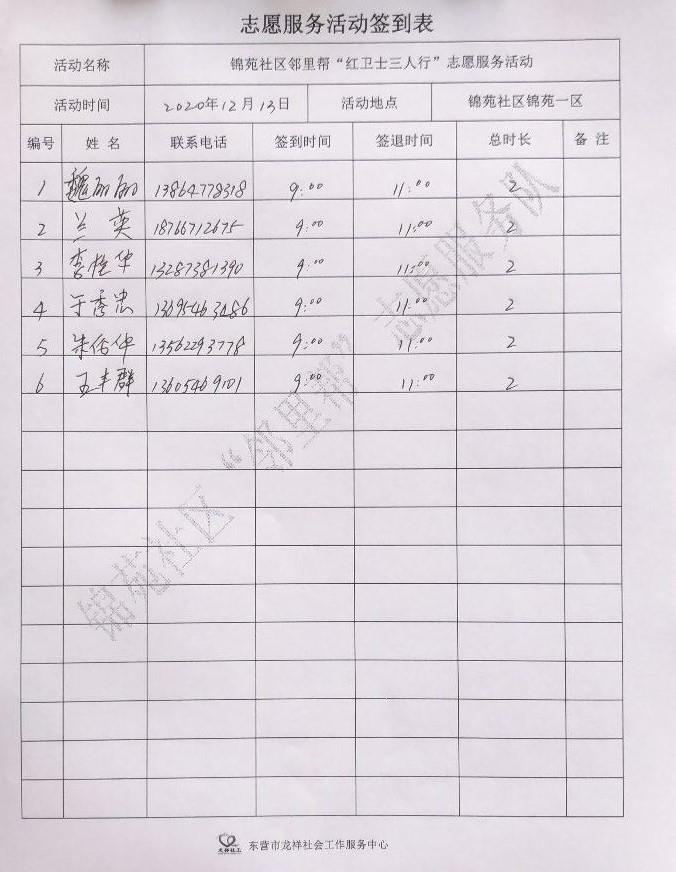 志愿服务活动签到表
活动名称 锦苑社区邻里帮“红卫士三人行”志愿服务活动
活动时间 2020年12月13日 活动地点 锦苑社区锦苑一区
编号 姓名 联系电话 签到时间 签退时间 总时长 备注
1 魏丽丽 13864778318 9:00 11:00 2
2 兰英 18766712675 9:00 11:00 2
3 李桂华 13287381390 9:00 11:00 2
4 于秀忠 9:00 11:00 2
5 13562293778 9:00 11:00 2
6 王丰群 13605469101 9:00 11:00 2
锦苑社区“邻里帮”志愿服务队
龙祥社工 东营市龙祥社会工作服务中心